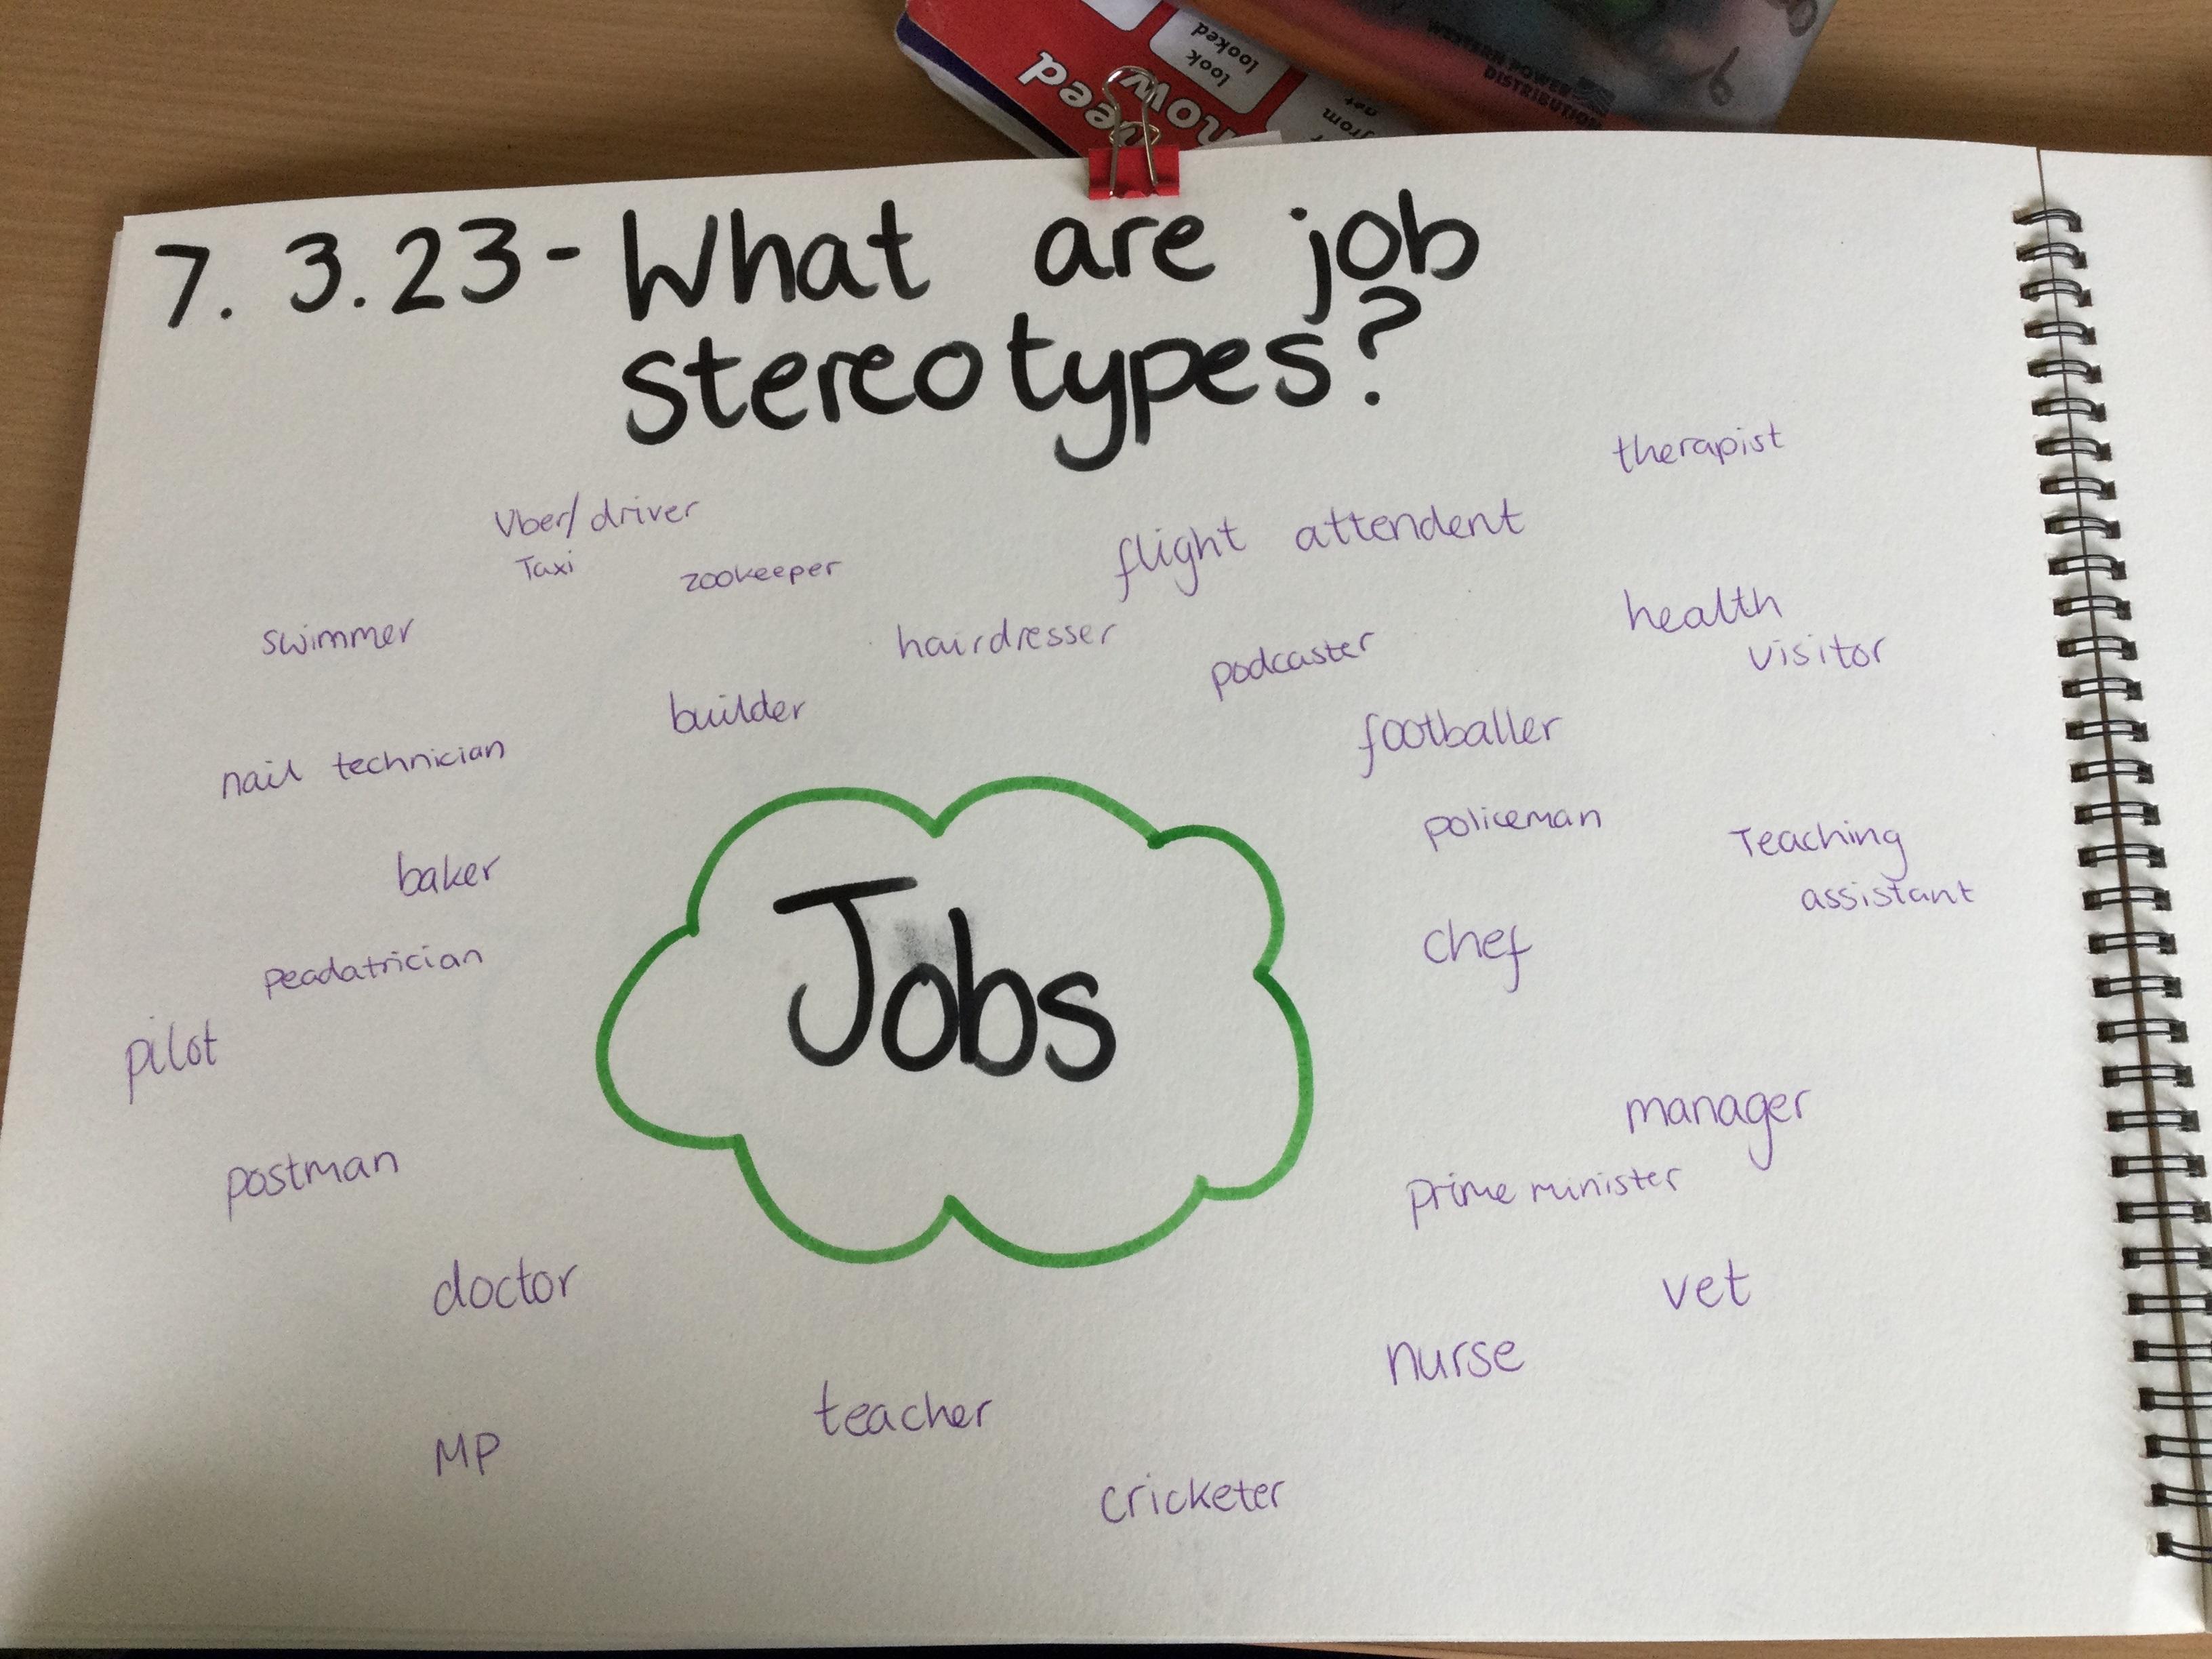 need
now
look
looked
from
not
WESTERN POWER
DISTRIBUTION
7.3.23- What are job
stereotypes?
therapist
Uber/ driver
Taxi
zookeeper
flight attendent
swimmer
hairdresser
podcaster
health
visitor
builder
footballer
nail technician
policeman
Teaching
assistant
baker
chef
peadatrician
Jobs
pilot
manager
postman
prime minister
doctor
vet
nurse
teacher
MP
cricketer